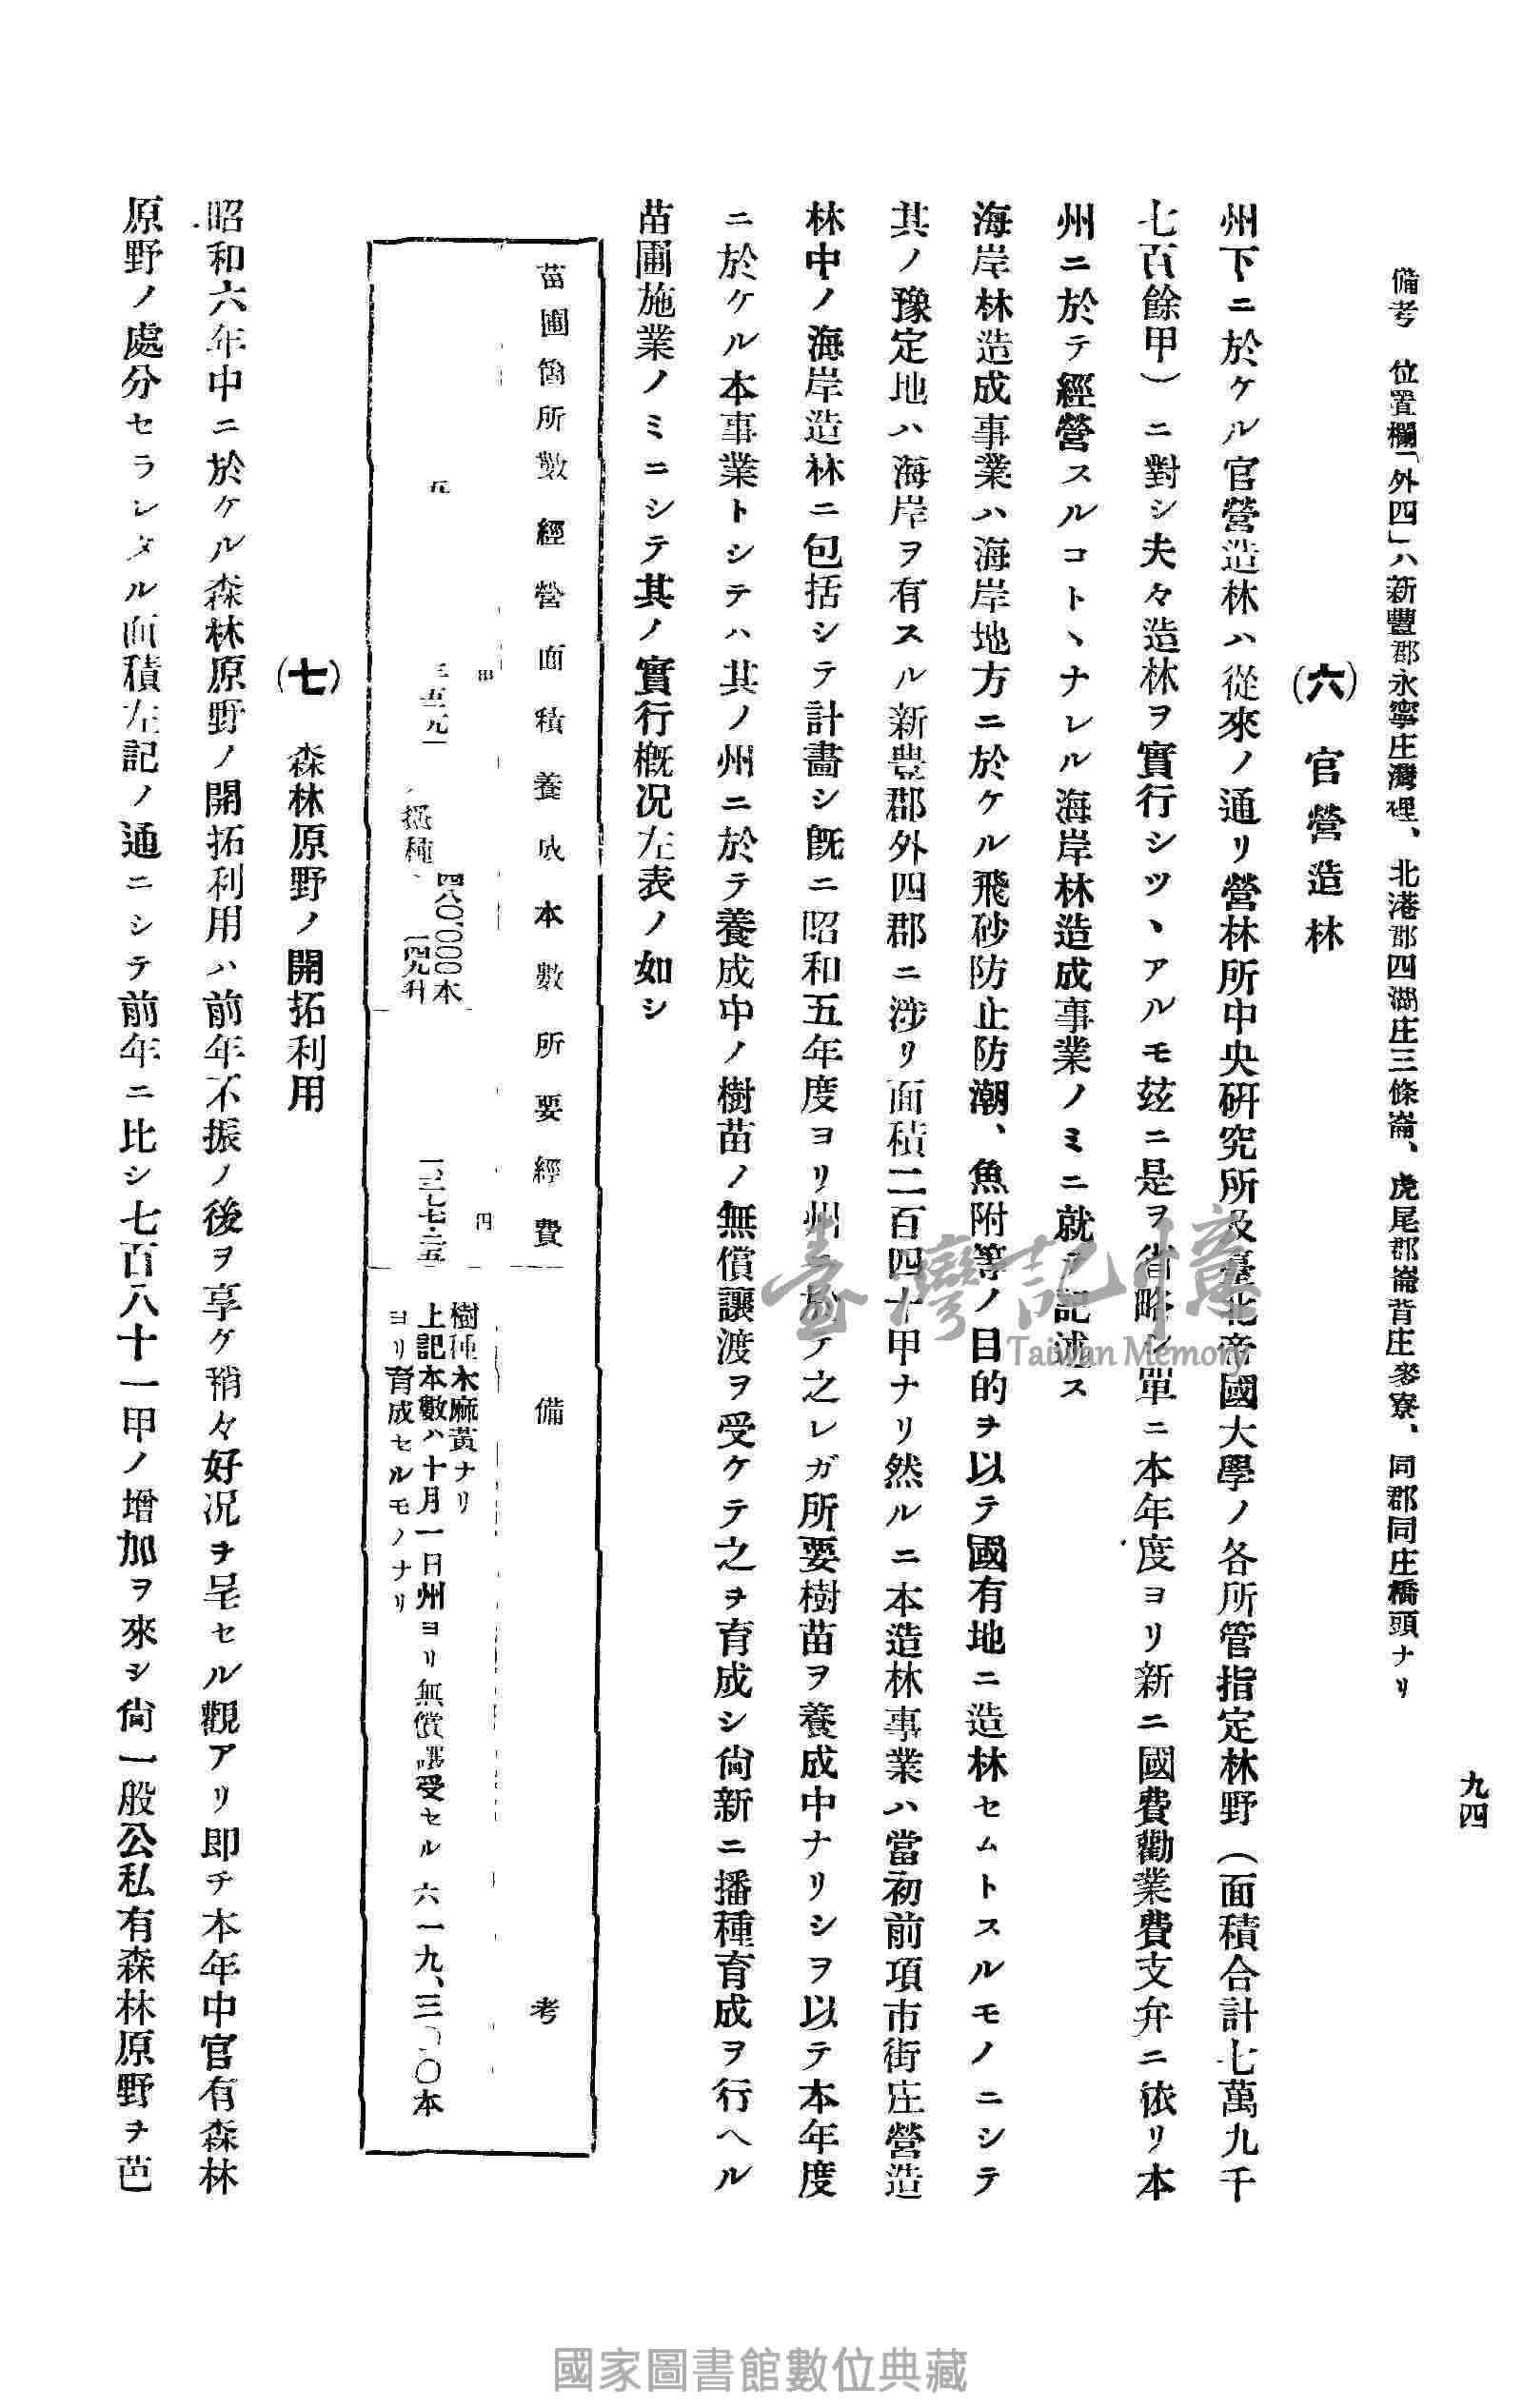 九四
備考　位置欄「外四」ハ新豐郡永寧庄灣裡、北港郡四湖庄三條崙、虎尾郡崙背庄麥寮、同郡同庄橋頭ナリ
(六)　官營造林
州下ニ於ケル官營造林ハ從來ノ通リ營林所中央硏究所及臺北帝國大學ノ各所管指定林野（面積合計七萬九千
七百餘甲）ニ對シ夫々造林ヲ實行シツヽアルモ玆ニ是ヲ省略シ單ニ本年度ヨリ新ニ國費勸業費支弁ニ依リ本
州ニ於テ經營スルコトヽナレル海岸林造成事業ノミニ就テ記述ス
海岸林造成事業ハ海岸地方ニ於ケル飛砂防止防潮、魚附等ノ目的ヲ以テ國有地ニ造林セムトスルモノニシテ
其ノ豫定地ハ海岸ヲ有スル新豊郡外四郡ニ涉リ面積二百四十甲ナリ然ルニ本造林事業ハ當初前項市街庄營造
林中ノ海岸造林ニ包括シテ計畵シ旣ニ昭和五年度ヨリ州ニ於テ之レガ所要樹苗ヲ養成中ナリシヲ以テ本年度
ニ於ケル本事業トシテハ其ノ州ニ於テ養成中ノ樹苗ノ無償讓渡ヲ受ケテ之ヲ育成シ尙新ニ播種育成ヲ行ヘル
苗圃施業ノミニシテ其ノ實行槪況左表ノ如シ
苗圃箇所數　經營面積　養成本數　所要經費　備考
甲　円
五　四八〇、〇〇〇本
樹種木麻黃ナリ
上記本數ハ十月一日州ヨリ無償讓受セル六一九、三〇〇本
ヨリ育成セルモノナリ
(七)　森林原野ノ開拓利用
昭和六年中ニ於ケル森林原野ノ開拓利用ハ前年不振ノ後ヲ享ケ稍々好况ヲ呈セル觀アリ即チ本年中官有森林
原野ノ處分セラレタル面積左記ノ通ニシテ前年ニ比シ七百八十一甲ノ增加ヲ來シ尙一般公私有森林原野ヲ芭
臺灣記憶
Taiwan Memory
國家圖書館數位典藏